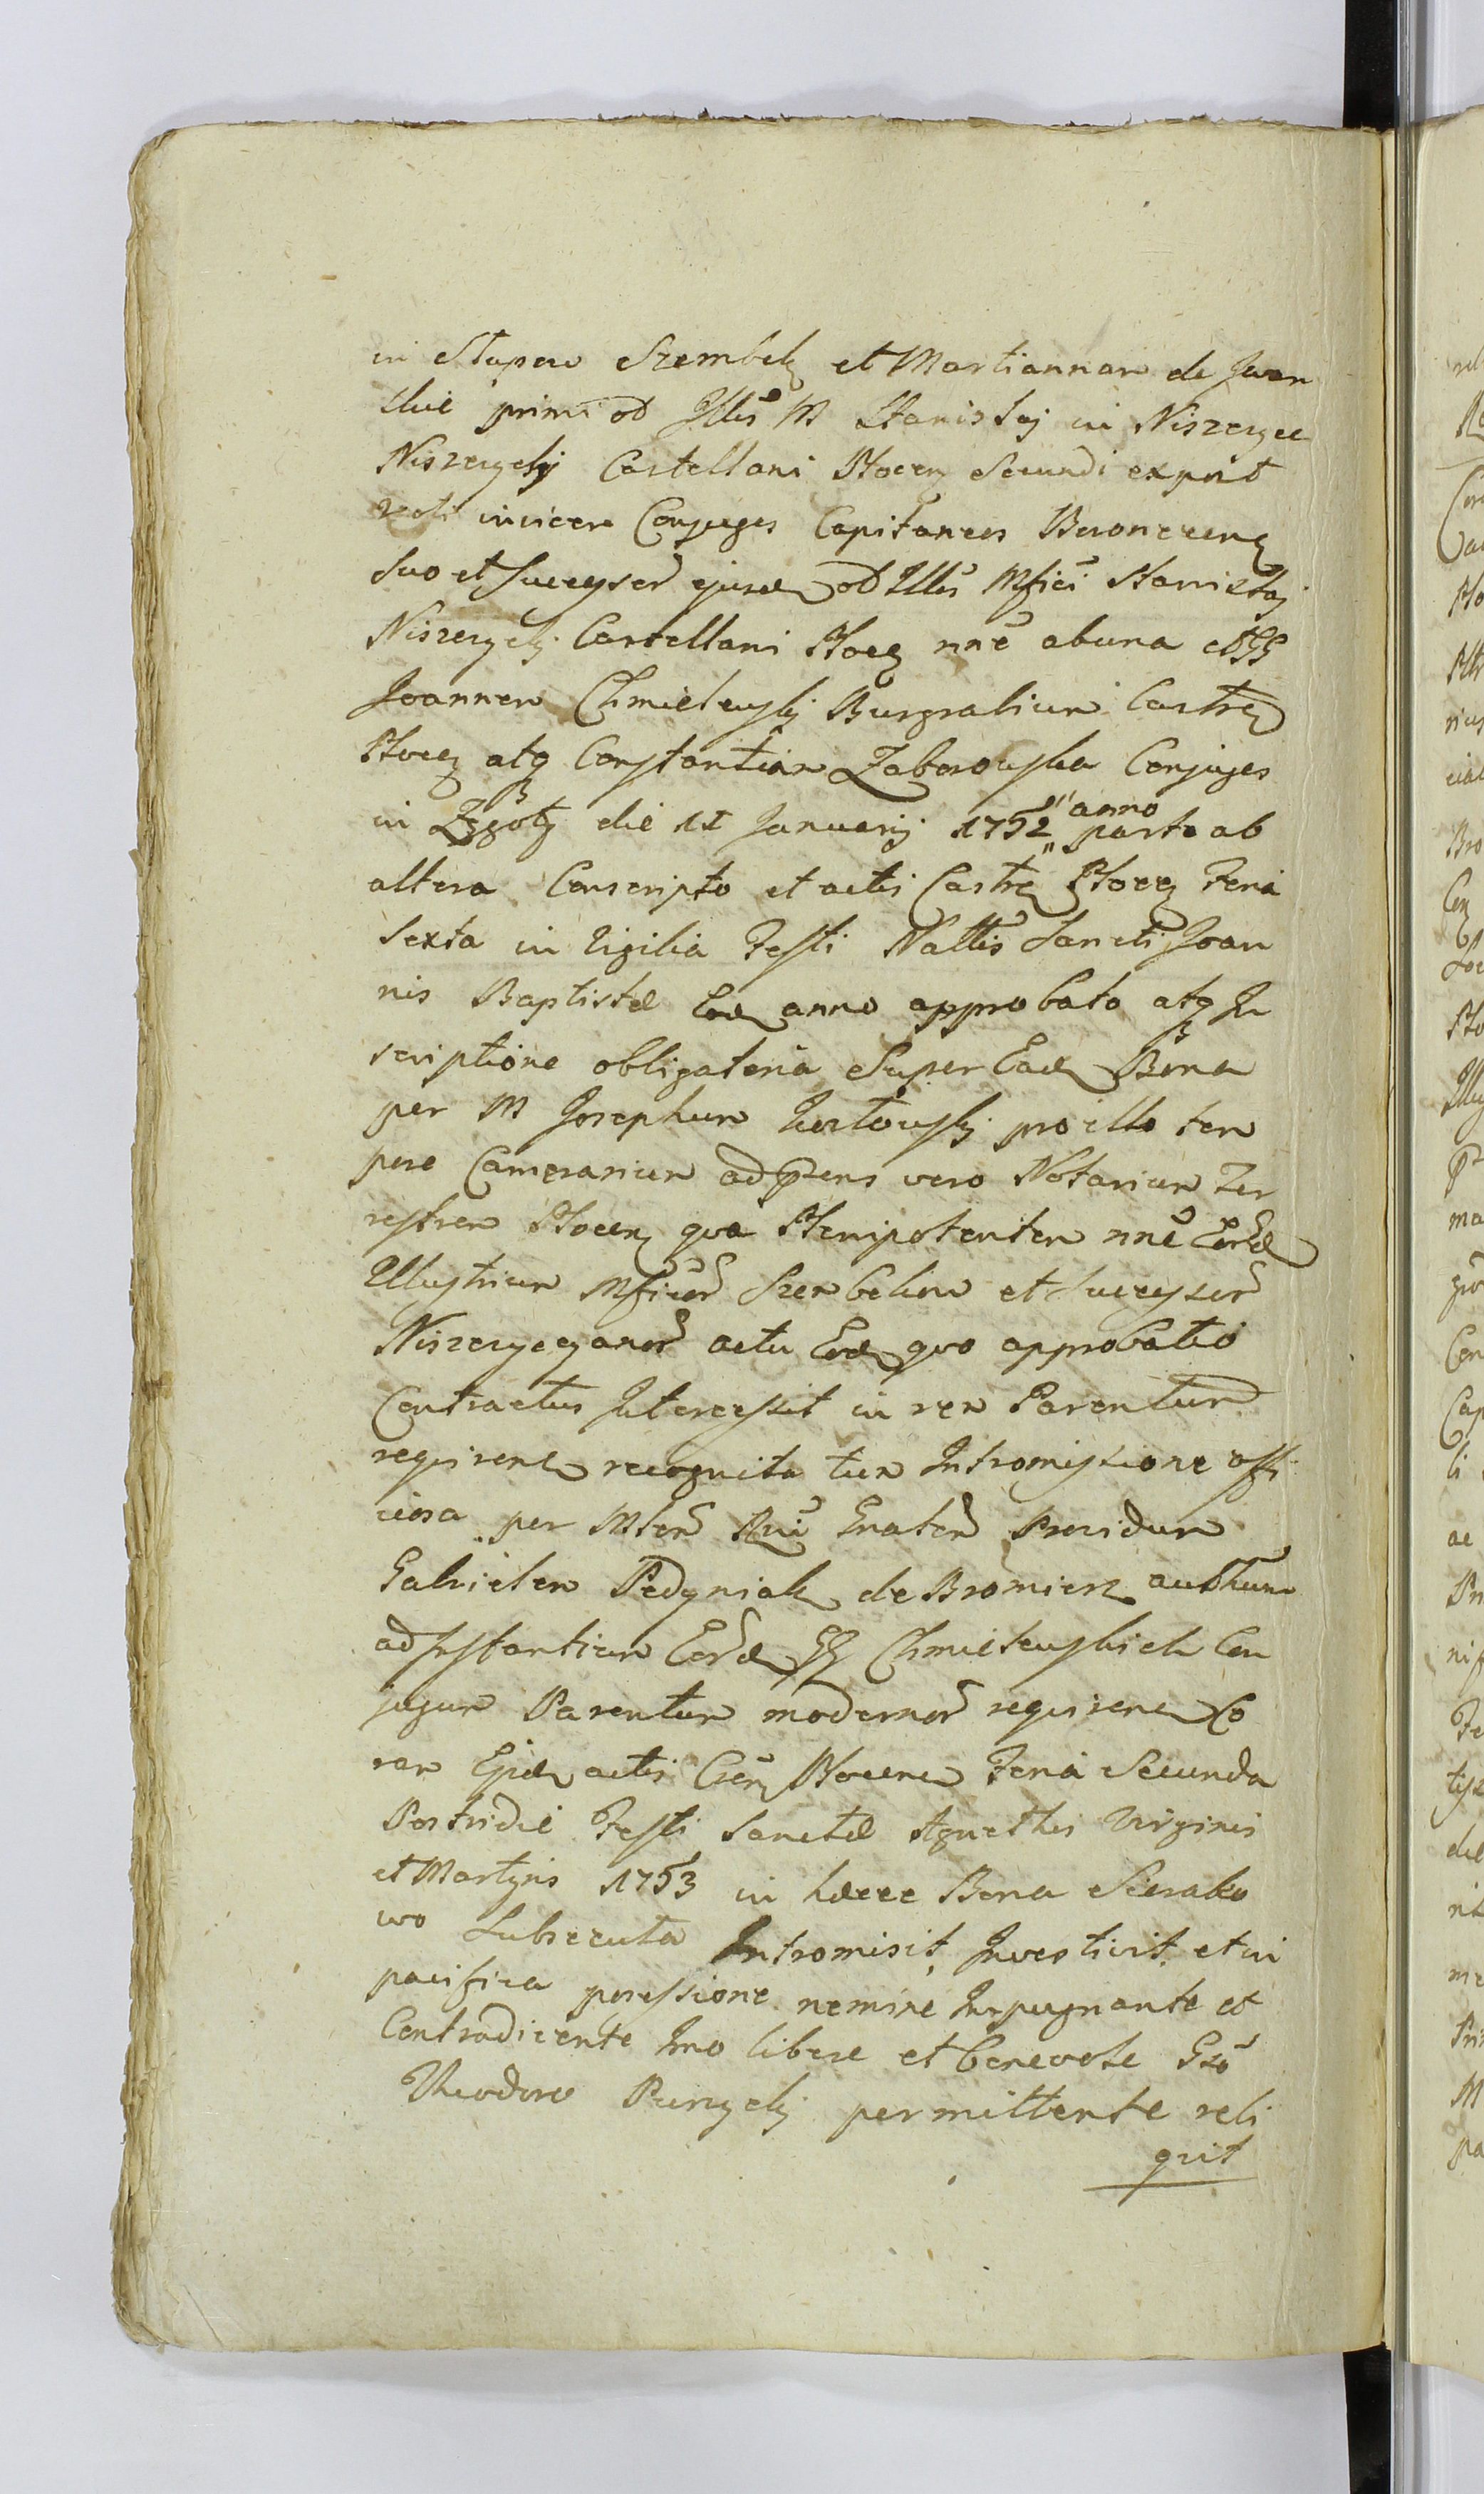 in Słupow Szembek et Martiannam de Iwan
skie primi od Illis M Stanislaj in Niszczyce
Niszczycky Castellani Plocen Secundi
voti invicem Conjuges Capitaneos
suo et Successor ejusd od Illis Mfici Stanislaj
Niszczycky Castellani Ploc nne ab una
Joannem Chmielewsky Burgrabium Castren
Plocen atq Constantiam Zaborowska Conjuges
in die 11 Januarij 1752 anno parte ab
altera Conscripto et actis Castr Plocen Feria
Sexta in Vigilia Festi Nattis Sancti Joan
nis Baptistæ Eod anno approbato atq In
scriptione obligatoria Super Ead Bona
per M Josephum pro illo tem
pore Camerarium ad prens vero Notarium Ter
restrem Plocen qua Plenipotentem nne Eord
Illustrium Mficor Szembekow et Successor
Niszczycyanor actu Eod quo approbatio
Contractus Intercessit in rem Parentum
requiren recognita tum Intromissione offi
ciosa per Mtem Rni Gnalem Providum
Gabrielem Pedyniak de Bromierz authum
ad Instantiam Eord GG Chmielewskich Con
jugum Parentum modernor requiren Co
ram Ejusd actis Plocen Feria Secunda
Postridie Festi Sanctæ Agnethis Virginis
et Martyris 1753 in hæcce Bona Sierako
wo Subsecuta Intromisit, Investivit, et in
pacifica possessione nemine Inpugnante et
Contradicente Imo libere et benevole Gso
Theodoro permittente reli
quit